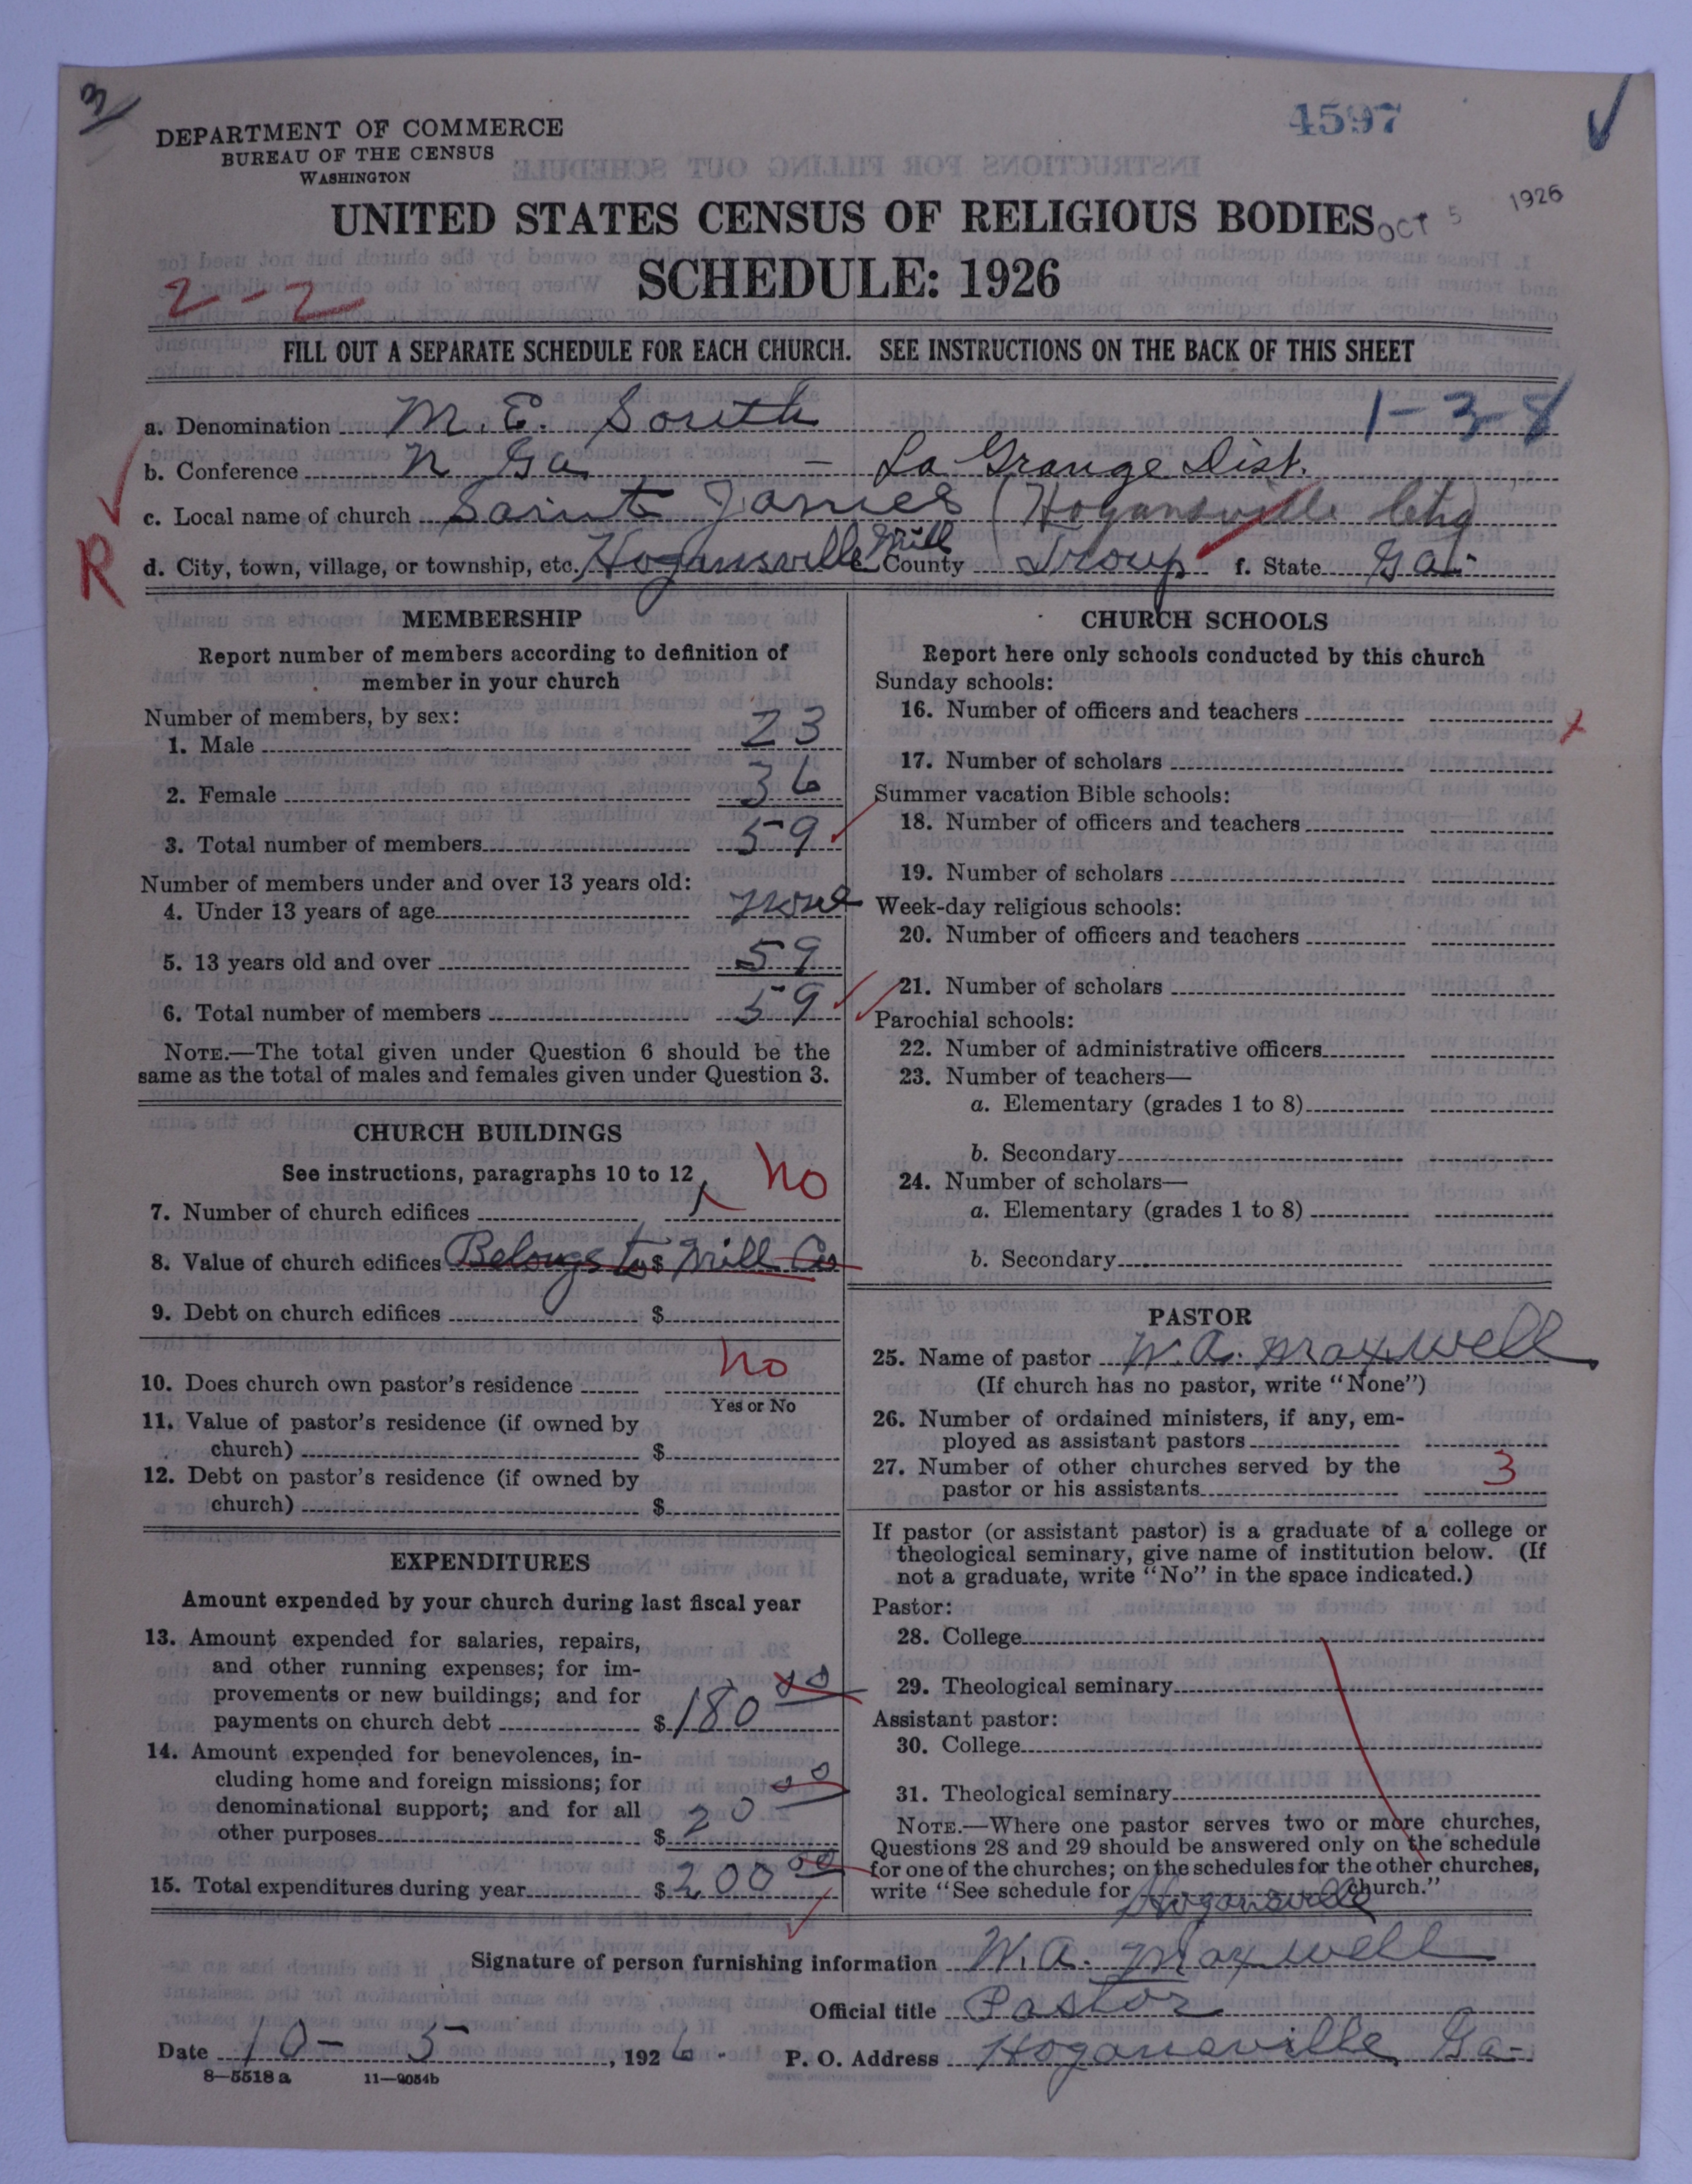 3
4597
DEPARTMENT OF COMMERCE
BUREAU OF THE CENSUS
WASHINGTON
OCT 5 1926
UNITED STATES CENSUS OF RELIGIOUS BODIES
SCHEDULE: 1926
2-2
FILL OUT A SEPARATE SCHEDULE FOR EACH CHURCH. SEE INSTRUCTIONS ON THE BACK OF THIS SHEET
1-3-8
a. Denomination M. E. South
b. Conference N Ga - La Grange Dist.
c. Local name of church Saint James (Hogansville
R
d. City, town, village, or township, etc. Hogansville Mill County Troup f. State Ga.
MEMBERSHIP
Report number of members according to definition of
member in your church
Number of members, by sex:
1. Male 23
2. Female 36
3. Total number of members 59
Number of members under and over 13 years old:
4. Under 13 years of age None
5. 13 years old and over 59
6. Total number of members 59
NOTE.—The total given under Question 6 should be the
same as the total of males and females given under Question 3.
CHURCH BUILDINGS
See instructions, paragraphs 10 to 12
7. Number of church edifices no
8. Value of church edifices Belongs to $ Mill Co
9. Debt on church edifices $
10. Does church own pastor's residence no
Yes or No
11. Value of pastor's residence (if owned by
church) $
12. Debt on pastor's residence (if owned by
church) $
EXPENDITURES
Amount expended by your church during last fiscal year
13. Amount expended for salaries, repairs,
and other running expenses; for im-
provements or new buildings; and for
payments on church debt $180 00
14. Amount expended for benevolences, in-
cluding home and foreign missions; for
denominational support; and for all
other purposes $ 20 00
15. Total expenditures during year $200 00
CHURCH SCHOOLS
Report here only schools conducted by this church
Sunday schools:
16. Number of officers and teachers x
17. Number of scholars
Summer vacation Bible schools:
18. Number of officers and teachers
19. Number of scholars
Week-day religious schools:
20. Number of officers and teachers
21. Number of scholars
Parochial schools:
22. Number of administrative officers
23. Number of teachers—
a. Elementary (grades 1 to 8)
b. Secondary
24. Number of scholars—
a. Elementary (grades 1 to 8)
b. Secondary
PASTOR
25. Name of pastor W. A. Maxwell
(If church has no pastor, write "None")
26. Number of ordained ministers, if any, em-
ployed as assistant pastors
27. Number of other churches served by the
pastor or his assistants 3
If pastor (or assistant pastor) is a graduate of a college or
theological seminary, give name of institution below. (If
not a graduate, write "No" in the space indicated.)
Pastor:
28. College
29. Theological seminary
Assistant pastor:
30. College
31. Theological seminary
NOTE.—Where one pastor serves two or more churches,
Questions 28 and 29 should be answered only on the schedule
for one of the churches; on the schedules for the other churches,
write "See schedule for Hogansville church."
Signature of person furnishing information W. A. Maxwell
Official title Pastor
Date 10-5, 1926. P. O. Address Hogansville, Ga-
8—5518 a 11—9054b